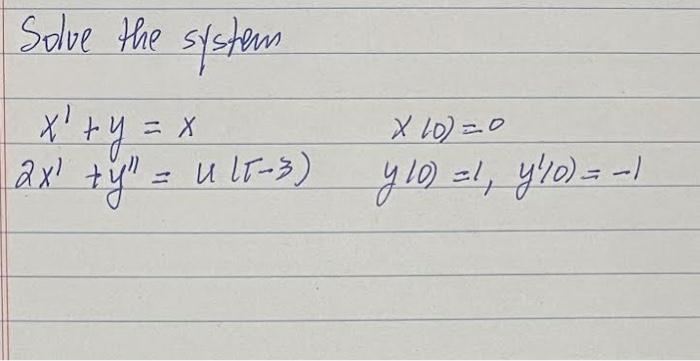 Solve the system
x' + y = x x(0) = 0
2x' + y" = u(t-3) y(0) = 1, y'(0) = -1